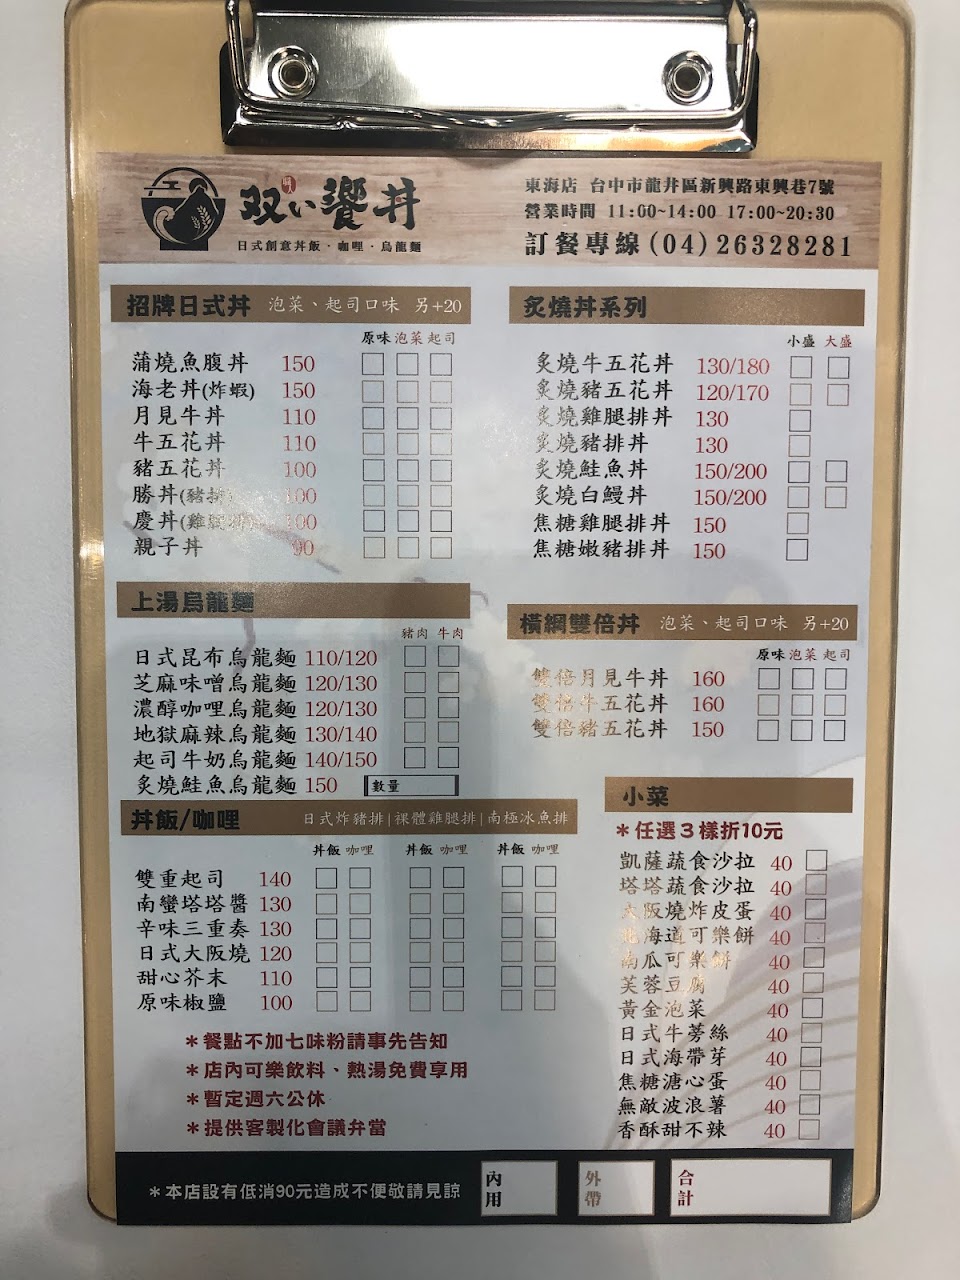 職人
双い饗丼
日式創意丼飯·咖哩·烏龍麵
東海店 台中市龍井區新興路東興巷7號
營業時間 11:00~14:00 17:00~20:30
訂餐專線(04)26328281
招牌日式丼 泡菜、起司口味 另+20
原味 泡菜 起司
蒲燒魚腹丼 150
海老丼(炸蝦) 150
月見牛丼 110
牛五花丼 110
豬五花丼 100
勝丼(豬排) 100
慶丼(雞腿排) 100
親子丼 90
上湯烏龍麵
豬肉 牛肉
日式昆布烏龍麵 110/120
芝麻味噌烏龍麵 120/130
濃醇咖哩烏龍麵 120/130
地獄麻辣烏龍麵 130/140
起司牛奶烏龍麵 140/150
炙燒鮭魚烏龍麵 150 數量
丼飯/咖哩 日式炸豬排|裸體雞腿排|南極冰魚排
丼飯 咖哩 丼飯 咖哩 丼飯 咖哩
雙重起司 140
南蠻塔塔醬 130
辛味三重奏 130
日式大阪燒 120
甜心芥末 110
原味椒鹽 100
*餐點不加七味粉請事先告知
*店內可樂飲料、熱湯免費享用
*暫定週六公休
*提供客製化會議弁當
炙燒丼系列
小盛 大盛
炙燒牛五花丼 130/180
炙燒豬五花丼 120/170
炙燒雞腿排丼 130
炙燒豬排丼 130
炙燒鮭魚丼 150/200
炙燒白鰻丼 150/200
焦糖雞腿排丼 150
焦糖嫩豬排丼 150
橫綱雙倍丼 泡菜、起司口味 另+20
原味 泡菜 起司
雙倍月見牛丼 160
雙倍牛五花丼 160
雙倍豬五花丼 150
小菜
*任選3樣折10元
凱薩蔬食沙拉 40
塔塔蔬食沙拉 40
大阪燒炸皮蛋 40
北海道可樂餅 40
南瓜可樂餅 40
芙蓉豆腐 40
黃金泡菜 40
日式牛蒡絲 40
日式海帶芽 40
焦糖溏心蛋 40
無敵波浪薯 40
香酥甜不辣 40
*本店設有低消90元造成不便敬請見諒
內用
外帶
合計